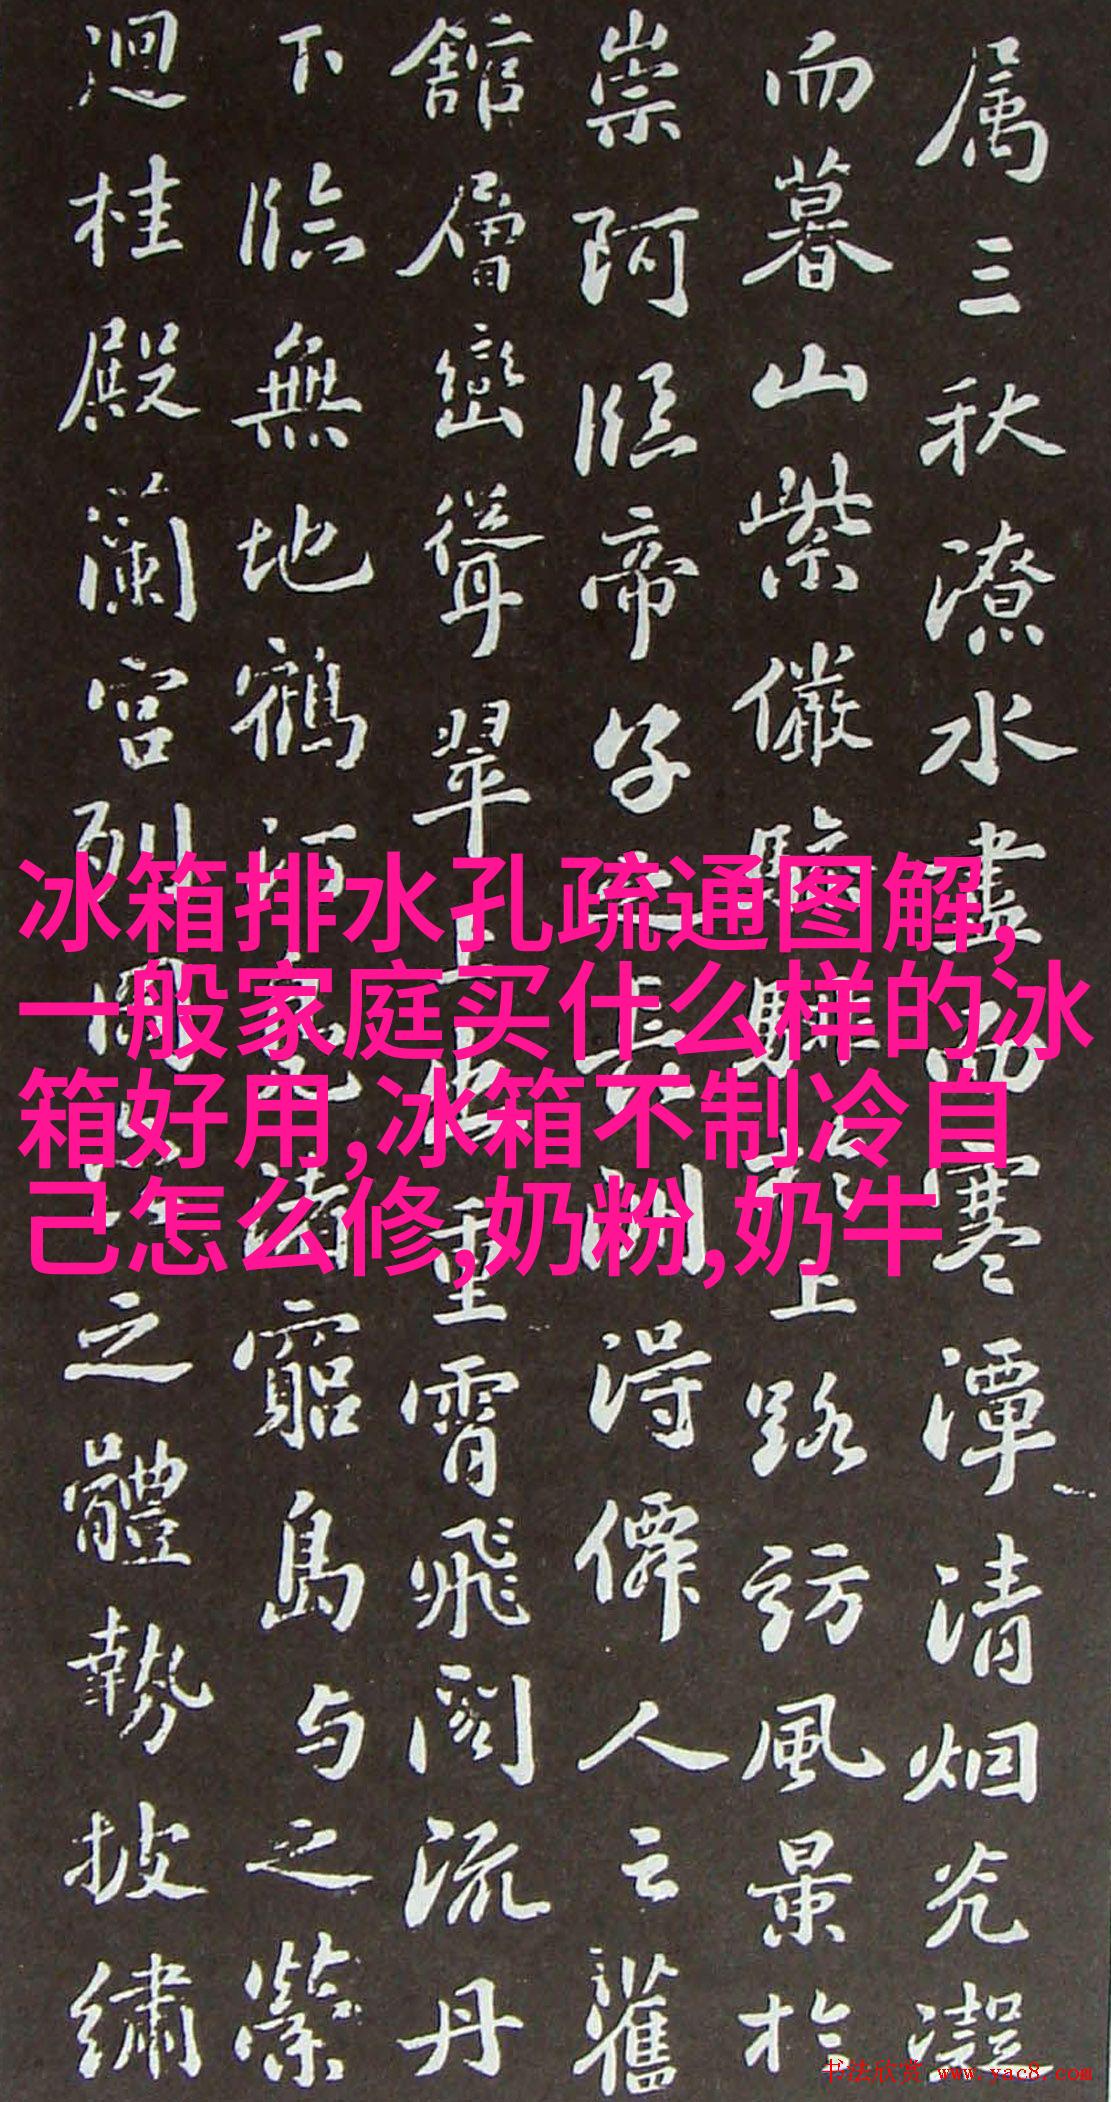 属三秋潦水盡而寒潭清烟光凝
而暮山紫儼驂騑於上路訪風景於
崇阿臨帝子之長洲得僊人之舊
館層巒聳翠上出重霄飛閣流丹
下臨無地鶴汀鳧渚窮島与之縈
迴桂殿蘭宮列岡巒之體勢披繡
冰箱排水孔疏通图解,
一般家庭买什么样的冰
箱好用,冰箱不制冷自
己怎么修,奶粉,奶牛
书法欣赏 www.yac8.com